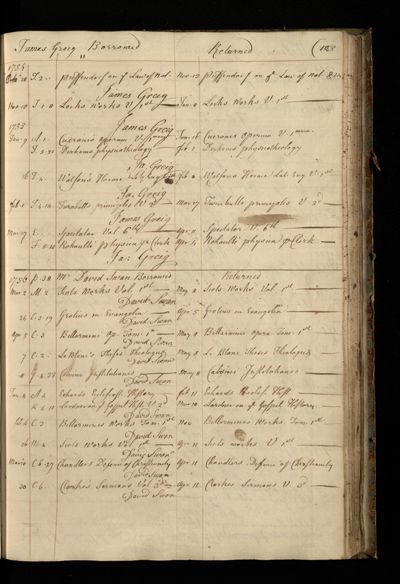 James Greig Borrowed Returned
1754
Puffendorf on ye Law of Nat. Nov 12 Puffendorf on ye Law of Nat
James Greig
Nov 10 Locks Works V 1st Jan 9 Locks Works V. 1st
1755 James Greig
Ciceronis operum V. Ciceronis Operum V. 1
Derhams physicotheology Feb 1 Derhams physicotheology
Ja. Greig
Watsons Horace Feb Watsons Horace Lat. Eng V 1st
Ja. Greig
Feb 1 Turnbulls principles V 2d Mar 27 Turnbulls principles V 2d
James Greig
Mar 27 Spectator Vol 6th Apr Spectator V. 6th
Rohaulti physica pr Clark Apr Rohaulti physica pr Clark
Ja. Greig
1756 Mr David Swan Borrowed Returned
Mar 2 M. 2 Scots Works Vol. 1st May Scots Works Vol. 1st
David Swan
26 Grotius in Evangelia Apr 5 Grotius in Evangelia
David Swan
Apr 5 C. 3 Bellarmini Op. Tom. 1st May Bellarmini opera Tom. 1st
David Swan
7 C. 2 Le Blanc's Theses Theologicae May 8 Le Blanc Theses Theologicae
David Swan
Calvini Institutiones May 8 Calvini Institutiones
David Swan
Echards Ecclesiast. History Feb 11 Echards Ecclesi. Hist.
Lardner on ye Gospel Hist. V 2d Mar 10 Lardner on ye Gospel History
David Swan
C. 3 Bellarminus Works Tom 1st Nov Bellarminus Works Tom. 1st
David Swan
26 M. 2 Scots Works Vol. 1st Apr 11 Scots works V 1st
David Swan
Mar 10 C. 6. 27 Chandlers Defence of Christianity Apr 11 Chandlers Defence of Christianity
David Swan
20 C 6 Clarkes Sermons Vol 5 Apr 12 Clarkes Sermons V. 5
David Swan